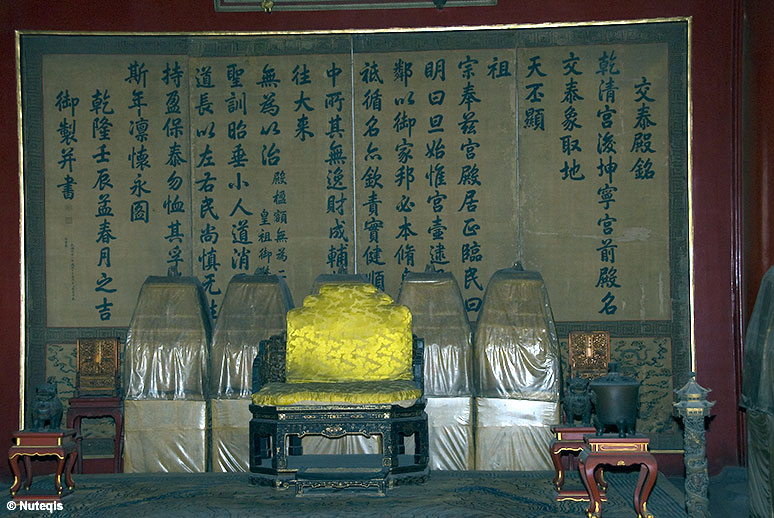 交泰殿銘
乾清宮後坤寧宮前殿名
交泰象取地
天丕顯
祖
宗奉兹宮殿居正臨民曰
明曰旦始惟宮臺逮
鄰以御家邦必本脩
祗循名亦欽責實健順
中所其無逸財成輔
往大来
無為以治 殿楹額無為二
皇祖御
聖訓昭垂小人道消
道長以左右民尚慎无
持盈保泰勿恤其孚
斯年凜懷永圖
乾隆壬辰孟春月之吉
御製并書
© Nuteqls